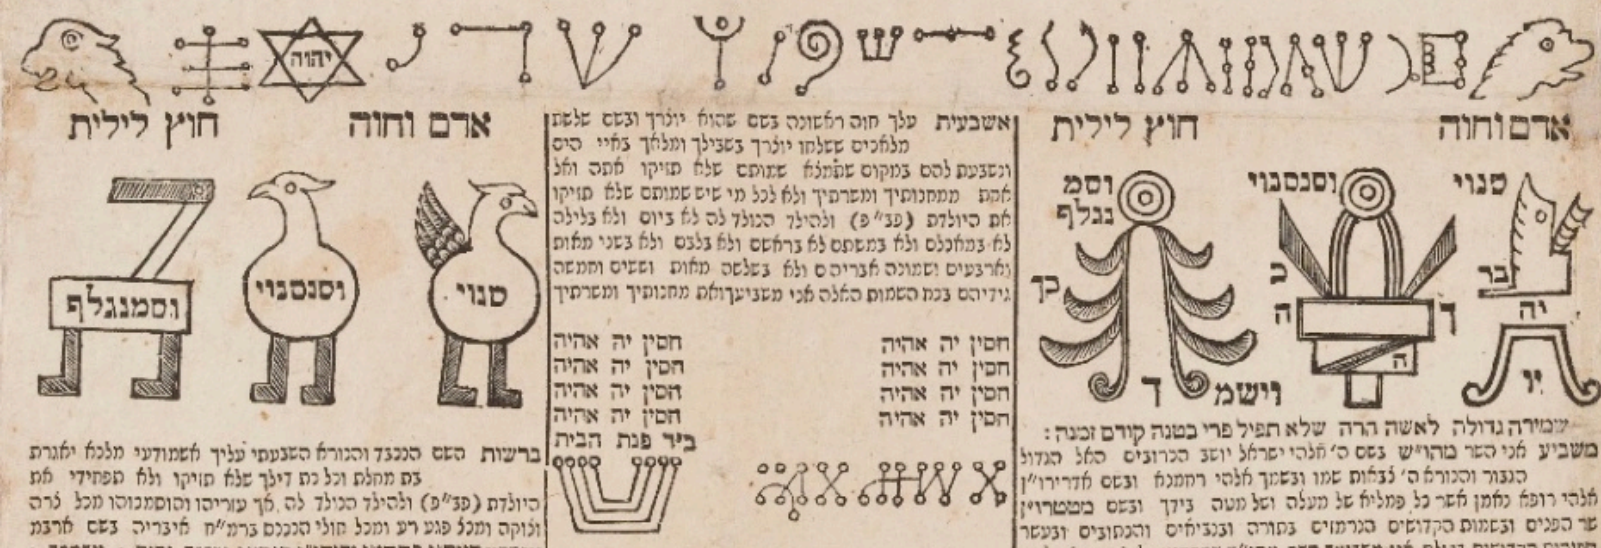 אדם וחוה
חוץ לילית
סנוי
וסנסנוי
וסמ
נגלף
בר
כ
כך
יה
ד
ה
ה
יו
וישמ
ד
שמירה גדולה לאשה הרה שלא תפיל פרי בטנה קודם זמנה :
משביע אני השר מהו״ש בשם ה׳ אלהי ישראל יושב הכרובים האל הגדול
הגבור והנורא ה׳ צבאות שמו ובשמך אלהי רחמנא ובשם אדרירו״ן
אלהי רופא נאמן אשר כל פמליא של מעלה ושל מטה בידך ובשם מטטרו״ן
שר הפנים ובשמות הקדושים הנרמזים בתורה ובנביאים והכתובים ובעשר
אשבעית עלך חוה ראשונה בשם שהוא יוצרך ובשם שלשת
מלאכים ששלחו יוצרך בשבילך ומלאך באיי הים
ונשבעת להם במקום שתמצא שמותם שלא תזיקו אתה ואל
אחת ממחנותיך ומשרתיך ולא לכל מי שיש שמותם שלא תזיקו
את היולדת (פב״פ) ולהילד הנולד לה לא ביום ולא בלילה
לא במאכלם ולא במשתם לא בראשם ולא בלבם ולא בשני מאות
וארבעים ושמונה אבריהם ולא בשלשה מאות וששים וחמשה
גידיהם בכח השמות האלה אני משביעך ואת מחנותיך ומשרתיך
חסין יה אהיה חסין יה אהיה
חסין יה אהיה חסין יה אהיה
חסין יה אהיה חסין יה אהיה
חסין יה אהיה חסין יה אהיה
פנת הבית
יהוה
אדם וחוה
חוץ לילית
סנוי
וסנסנוי
וסמנגלף
ברשות השם הנכבד והנורא השבעתי עליך אשמודעי מלכא יאגרת
בת מחלת וכל כת דילך שלא תזיקו ולא תפחידי את
היולדת (פב״פ) ולהילד הנולד לה אך עזריהו והוסמכוהו מכל צרה
וצוקה ומכל פגע רע ומכל חולי הנכנס ברמ״ח איבריה בשם ארבע